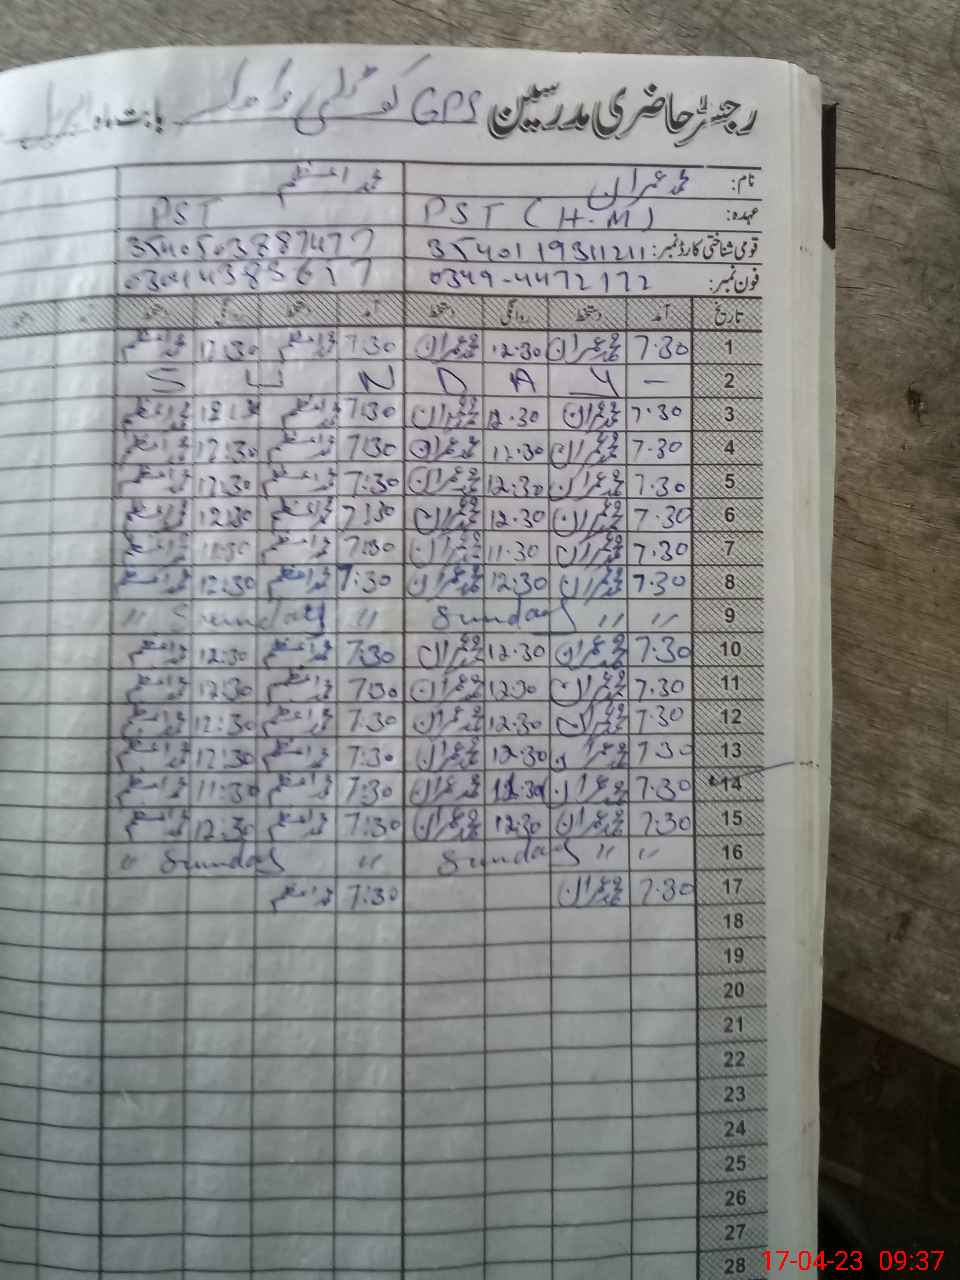 رجسٹر حاضری مدرسین GPS کوٹلی بابت ماہ اپریل
نام: محمد عمران محمد اعظم
عہدہ: PST (H.M) PST
قومی شناختی کارڈ نمبر: 3540119311211 3540503887477
فون نمبر: 0349-4472172
تاریخ آمد دستخط روانگی دستخط آمد دستخط روانگی دستخط آمد
1 7.30 عمران 12.30 عمران 7:30 محمد اعظم 12:30 محمد اعظم
2 — S U N D A Y
3 7.30 عمران 12.30 عمران 7:30 محمد اعظم 12:30 محمد اعظم
4 7.30 عمران 12.30 عمران 7:30 محمد اعظم 12:30 محمد اعظم
5 7.30 عمران 12.30 عمران 7:30 محمد اعظم 12:30 محمد اعظم
6 7.30 عمران 12.30 عمران 7:30 محمد اعظم 12:30 محمد اعظم
7 7.30 عمران 11.30 عمران 7:30 محمد اعظم 11:30 محمد اعظم
8 7.30 عمران 12.30 عمران 7:30 محمد اعظم 12:30 محمد اعظم
9 " " Sunday " Sunday "
10 7.30 عمران 12.30 عمران 7:30 محمد اعظم 12:30 محمد اعظم
11 7.30 عمران 12.30 عمران 7:30 محمد اعظم 12:30 محمد اعظم
12 7.30 عمران 12.30 عمران 7:30 محمد اعظم 12:30 محمد اعظم
13 7.30 عمران 12.30 عمران 7:30 محمد اعظم 12:30 محمد اعظم
14 7.30 عمران 11.30 عمران 7:30 محمد اعظم 11:30 محمد اعظم
15 7.30 عمران 12.30 عمران 7:30 محمد اعظم 12:30 محمد اعظم
16 " " Sunday " Sunday "
17 7.30 عمران 7:30 محمد اعظم
18
19
20
21
22
23
24
25
26
27
28
17-04-23 09:37